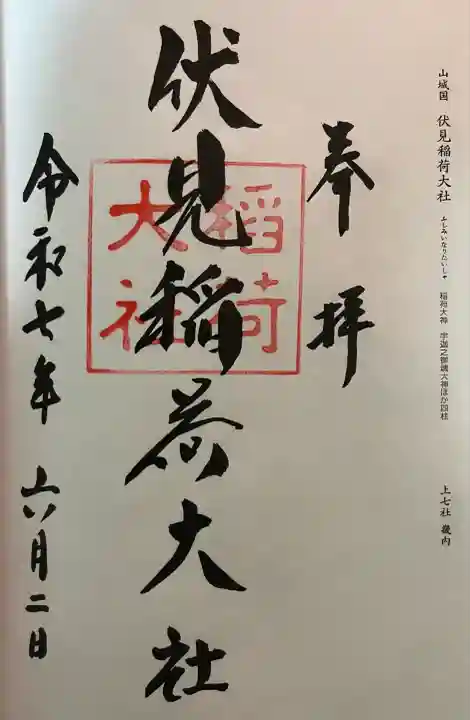 山城国 伏見稲荷大社 ふしみいなりたいしゃ 稲荷大神 宇迦之御魂大神ほか四柱 上七社 畿内
奉拝
伏見稲荷大社
稲荷
大社
令和七年 六月二日